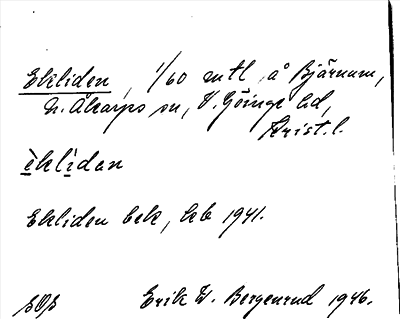 Ekliden, 1/60 mtl å Bjärnum,
N. Åkarps sn, V. Göinge hd,
Krist. l.
èklìdan
Ekliden bek, kb 1941.
sOs Erik W. Bergenrud 1946.